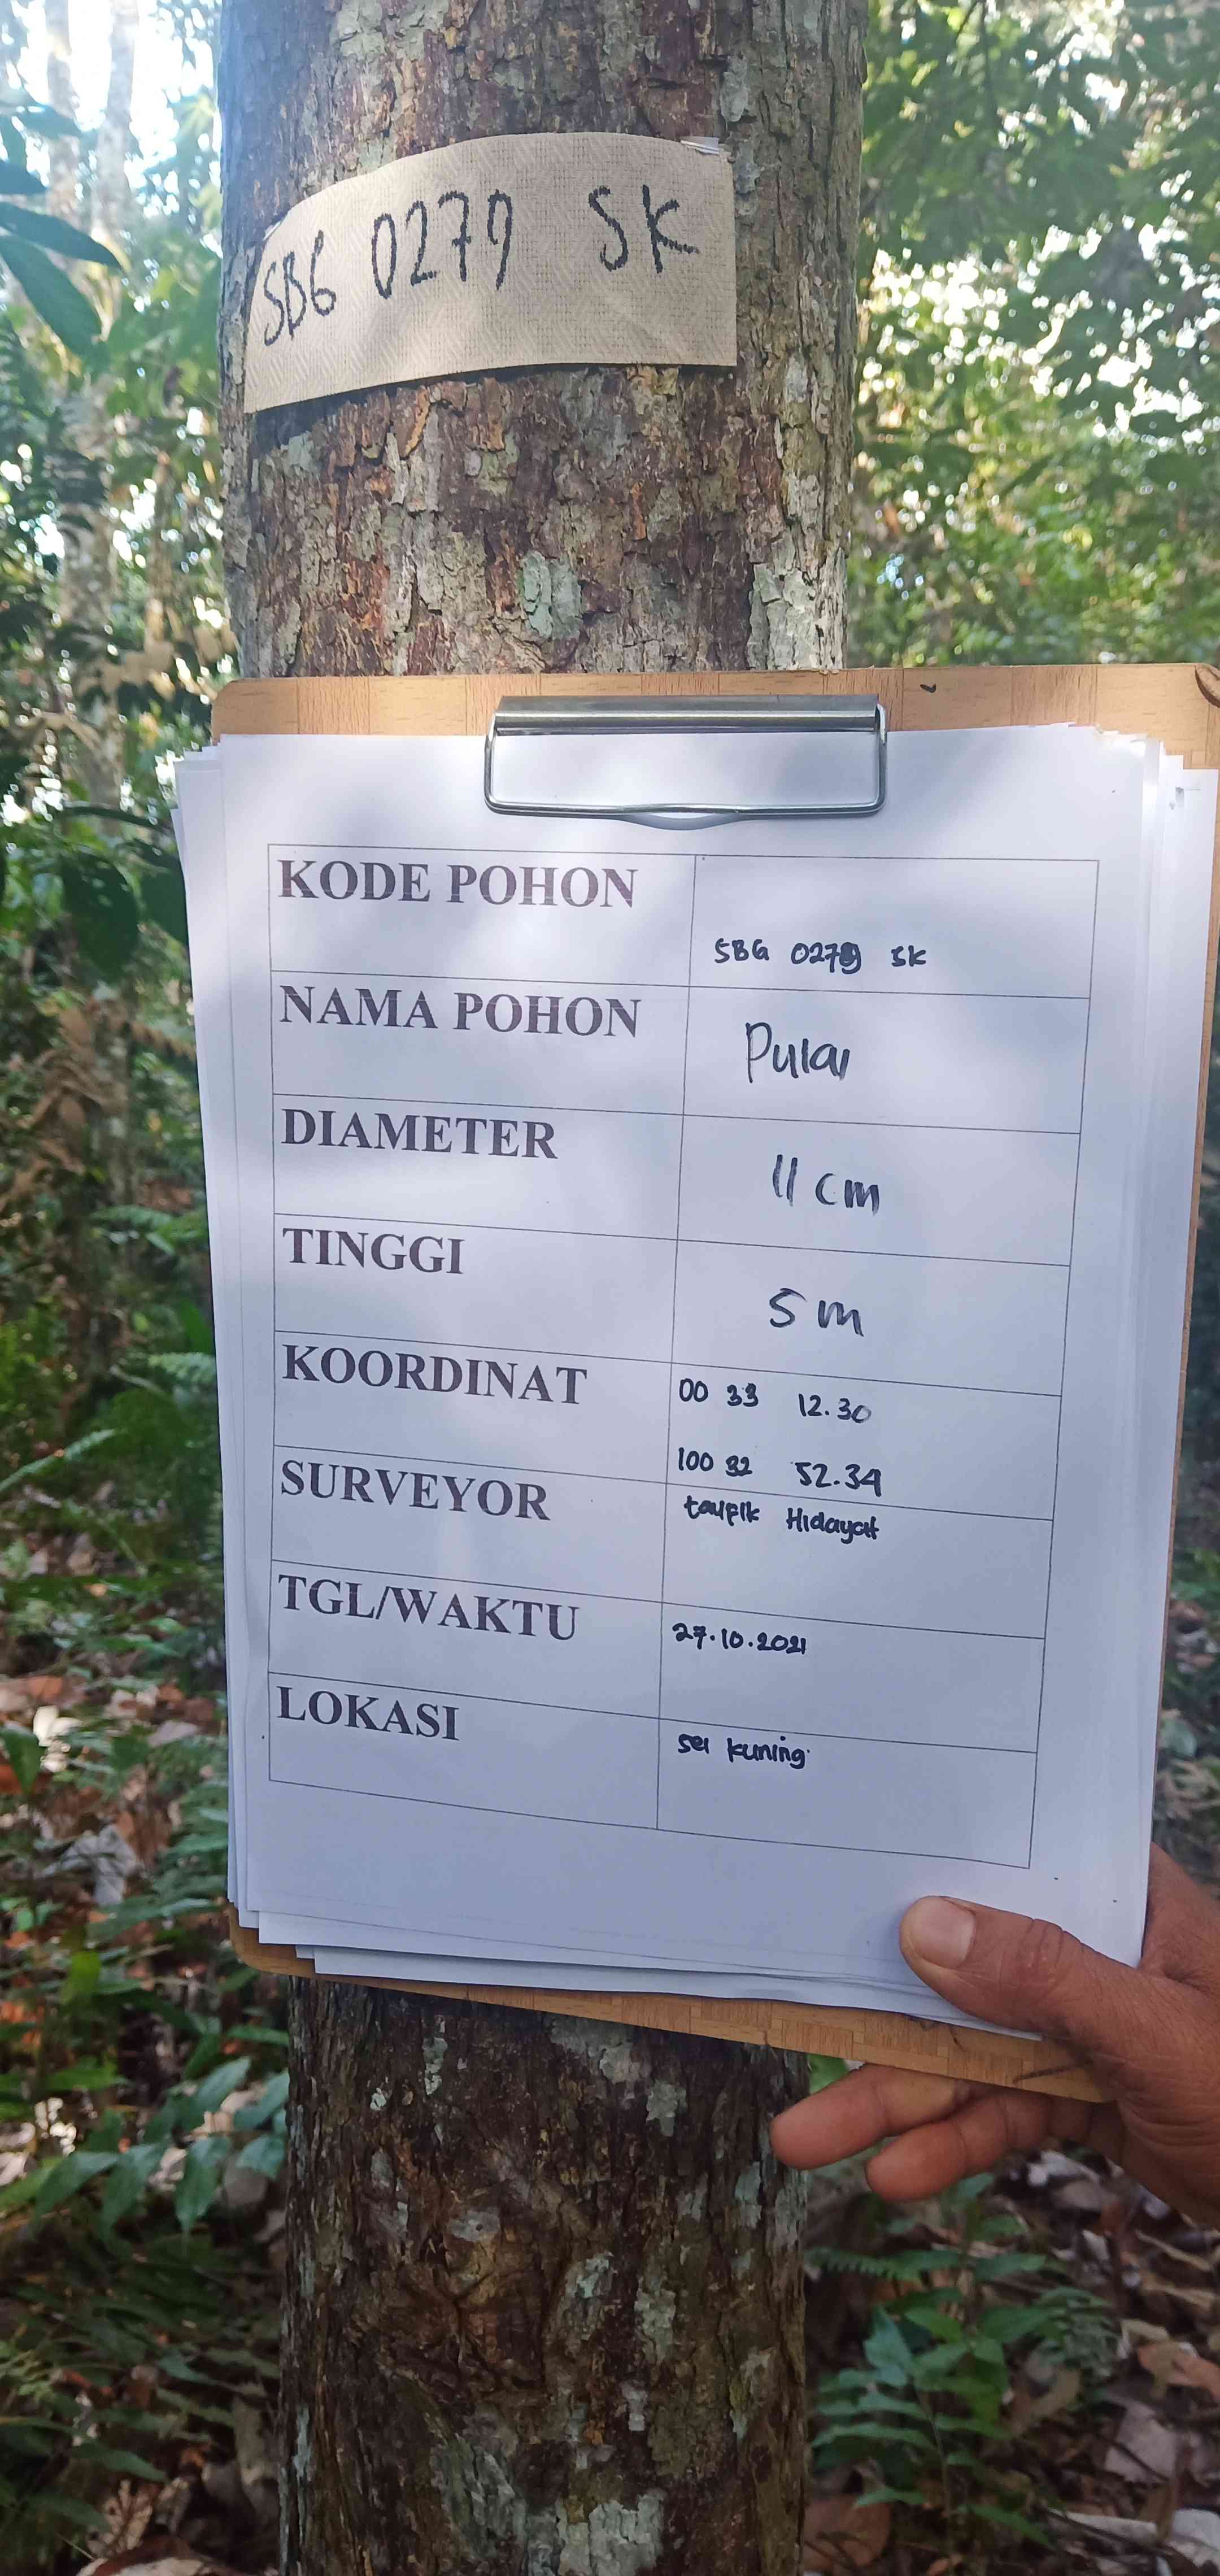 SBG 0279 SK
KODE POHON
SBG 0279 SK
NAMA POHON
Pulai
DIAMETER
11 cm
TINGGI
5 m
KOORDINAT
00 33 12.30
100 32 52.34
SURVEYOR
taufik Hidayat
TGL/WAKTU
27.10.2021
LOKASI
sei kuning